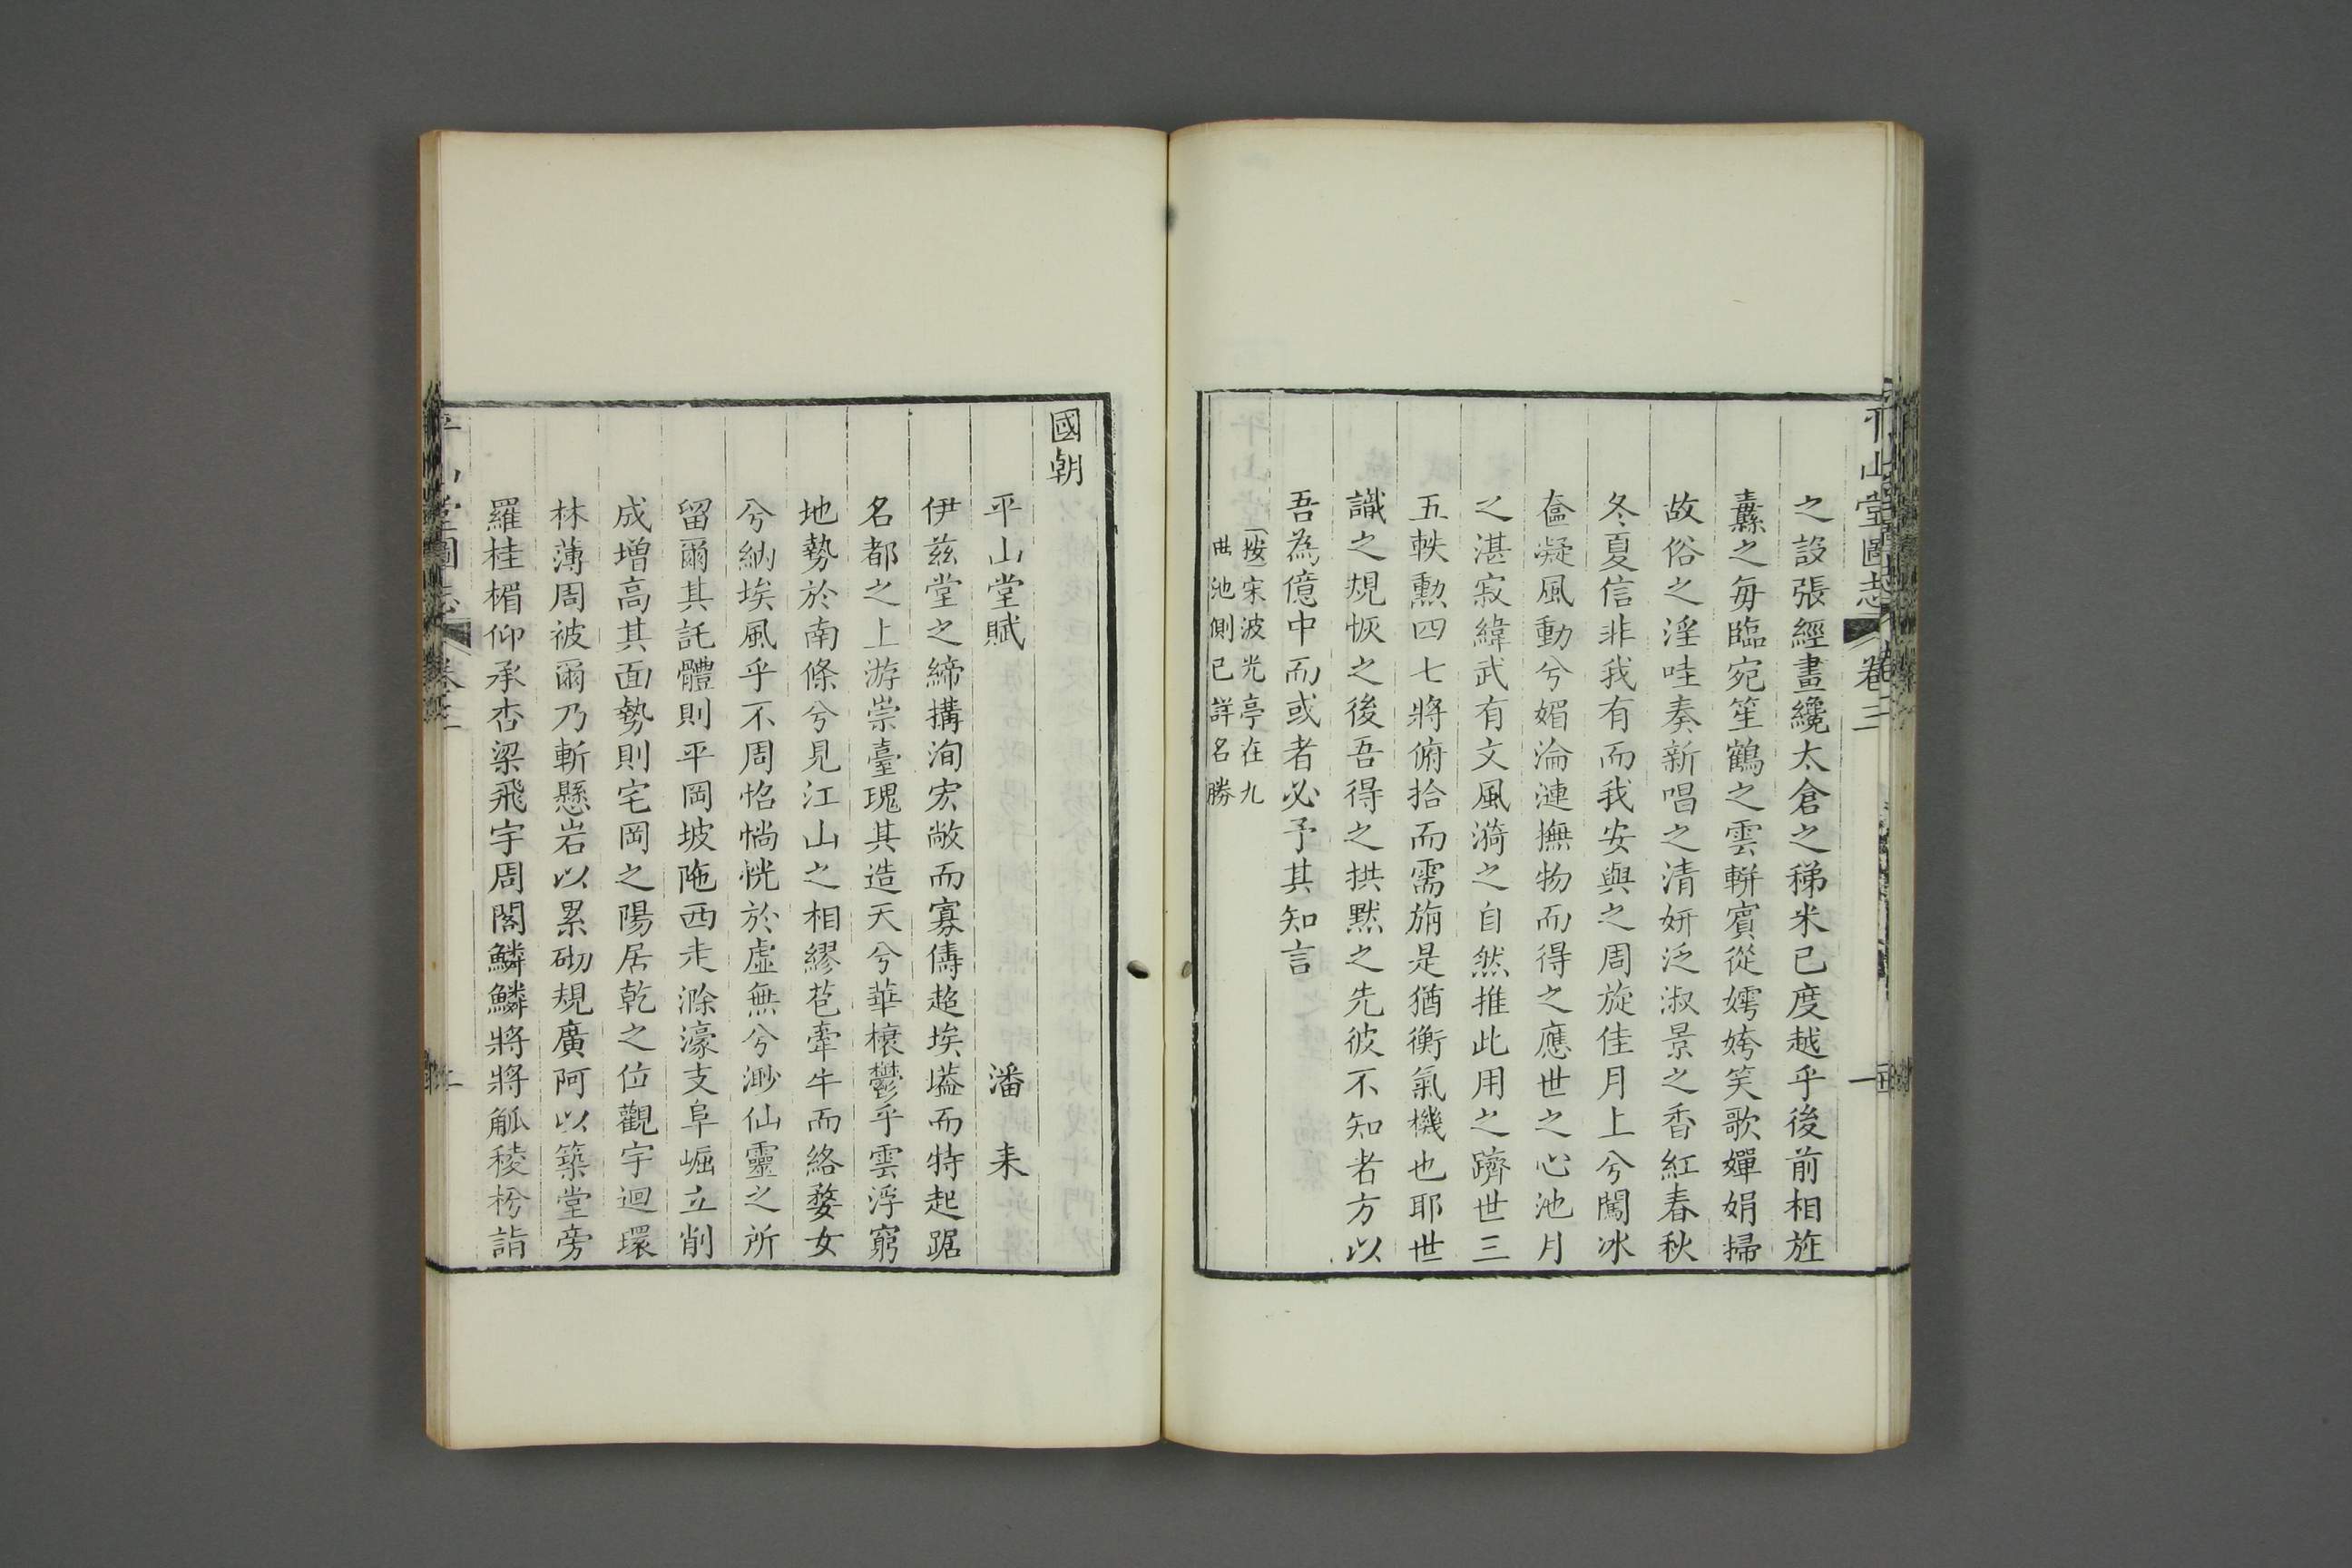 平山堂圖志 卷三 一
之設張經畫纔太倉之稊米已度越乎後前相旌
纛之每臨宛笙鶴之雲軿賓從嫮姱笑歌嬋娟掃
故俗之淫哇奏新唱之清妍泛淑景之香紅春秋
冬夏信非我有而我安與之周旋佳月上兮闖冰
奩凝風動兮媚淪漣撫物而得之應世之心池月
之湛寂緯武有文風漪之自然推此用之躋世三
五軼勳四七將俯拾而需旃是猶衡氣機也耶世
識之規恢之後吾得之拱默之先彼不知者方以
吾為億中而或者必予其知言
按宋波光亭在九
曲池側已詳名勝
國朝
平山堂賦 潘耒
伊茲堂之締搆洵宏敞而寡儔超埃壒而特起踞
名都之上游崇臺瑰其造天兮華榱鬱乎雲浮窮
地勢於南條兮見江山之相繆苞牽牛而絡婺女
兮納埃風乎不周怊惝恍於虛無兮渺仙靈之所
留爾其託體則平岡坡陁西走滁濠支阜崛立削
成增高其面勢則宅岡之陽居乾之位觀宇迴環
林薄周被爾乃斬懸岩以累砌規廣阿以築堂旁
羅桂楣仰承杏梁飛宇周閣鱗鱗將將觚稜枍詣
平山堂圖志 卷三